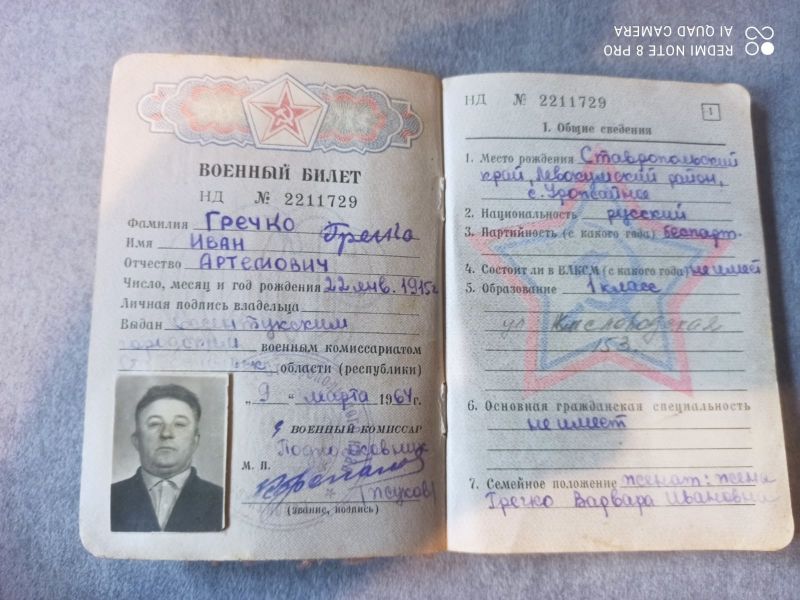 ВОЕННЫЙ БИЛЕТ
НД № 2211729
Фамилия Гречко
Имя Иван Гречко
Отчество Артемович
Число, месяц и год рождения 22 янв. 1915г
Личная подпись владельца
Выдан
военным комиссариатом
области (республики)
„9“ марта 1964 г.
ВОЕННЫЙ КОМИССАР
Подполковник
М. П.
(звание, подпись)
НД № 2211729
1
I. Общие сведения
1. Место рождения Ставропольский
край, Левокумский район,
с. Урожайное
2. Национальность русский
3. Партийность (с какого года) беспарт.
4. Состоит ли в ВЛКСМ (с какого года) не имеет
5. Образование 1 класс
ул Кисловодская
153.
6. Основная гражданская специальность
не имеет
7. Семейное положение женат: жена
Гречко Варвара Ивановна
REDMI NOTE 8 PRO
AI QUAD CAMERA